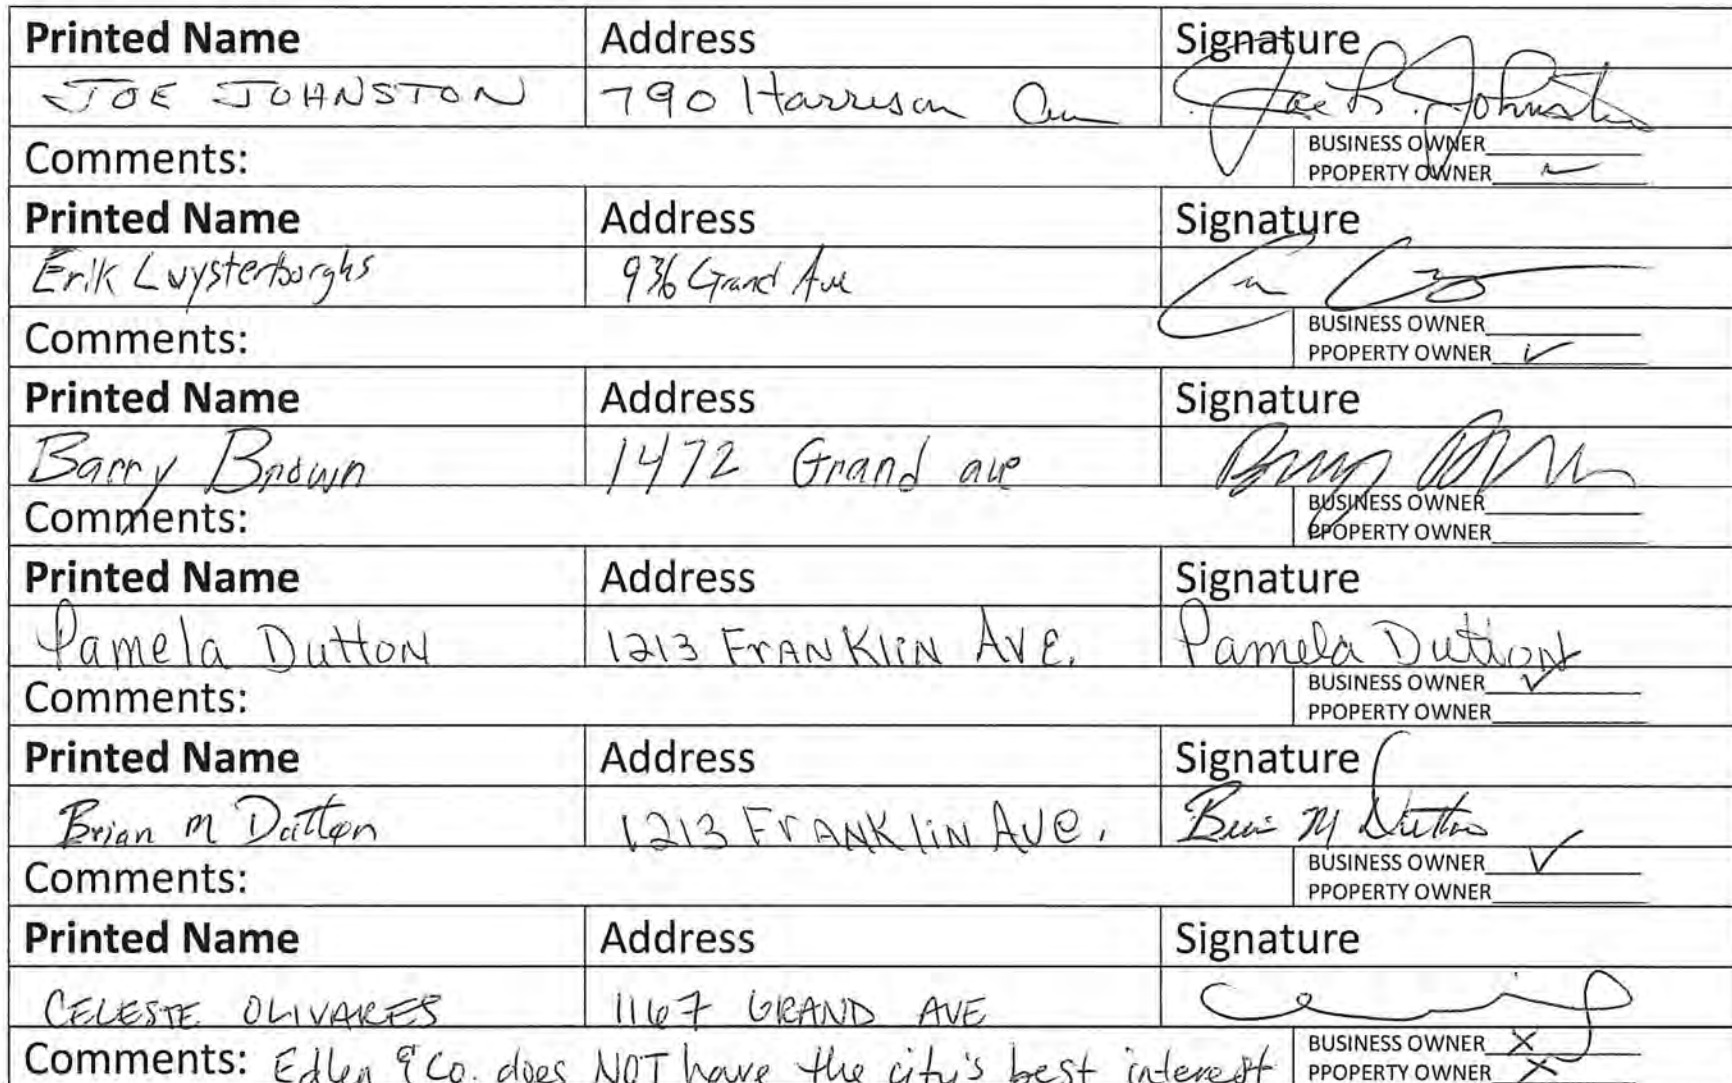 Printed Name Address Signature
JOE JOHNSTON 790 Harrison Ave Joe L. Johnston
Comments: BUSINESS OWNER
PPOPERTY OWNER
Printed Name Address Signature
Erik Luysterborghs 936 Grand Ave
Comments: BUSINESS OWNER
PPOPERTY OWNER ✓
Printed Name Address Signature
Barry Brown 1472 Grand ave
Comments: BUSINESS OWNER
PPOPERTY OWNER
Printed Name Address Signature
Pamela Dutton 1213 FRANKLIN AVE. Pamela Dutton
Comments: BUSINESS OWNER ✓
PPOPERTY OWNER
Printed Name Address Signature
Brian M Dutton 1213 FRANKLIN AVE. Brian M Dutton
Comments: BUSINESS OWNER ✓
PPOPERTY OWNER
Printed Name Address Signature
CELESTE OLIVARES 1167 GRAND AVE
Comments: Edlen & Co. does NOT have the city's best interest BUSINESS OWNER X
PPOPERTY OWNER X